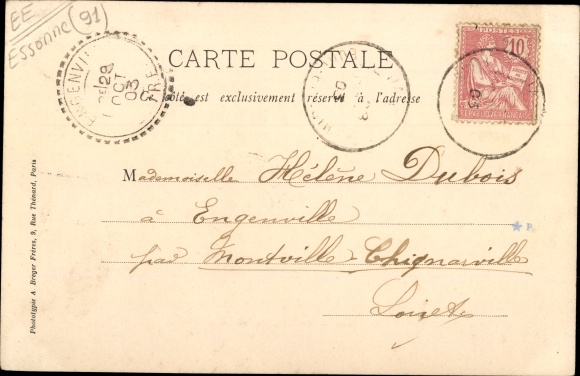 EE
Essonne (91)
CARTE POSTALE
Ce côté est exclusivement réservé à l'adresse
29
OCT
03
POSTES
10
RÉPUBLIQUE FRANÇAISE
03
Mademoiselle Hélène Dubois
à Engenville
par Montville-Chignarville
Loiret
P.
Phototypie A. Breger Frères, 9, Rue Thénard, Paris